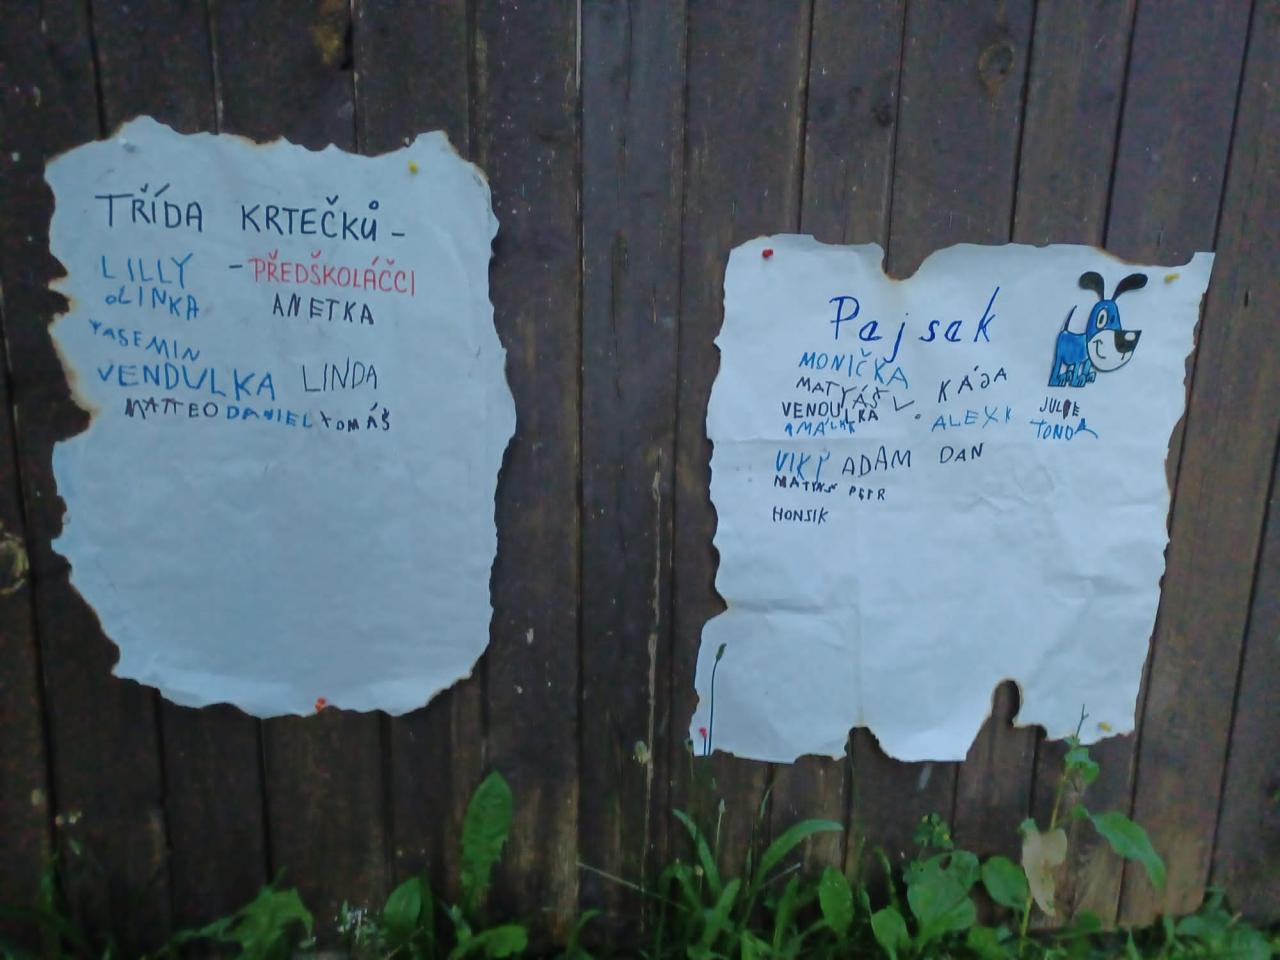 TŘÍDA KRTEČKŮ –
LILLY – PŘEDŠKOLÁČCI
OLINKA ANETKA
YASEMIN
VENDULKA LINDA
MATTEO DANIEL TOMÁŠ
Pejsek
MONIČKA
MATYÁŠ V. KÁJA
VENDULKA ALEX JULIE
AMÁLKA TONDA
VIKY ADAM DAN
MATYÁŠ PETR
HONSIK